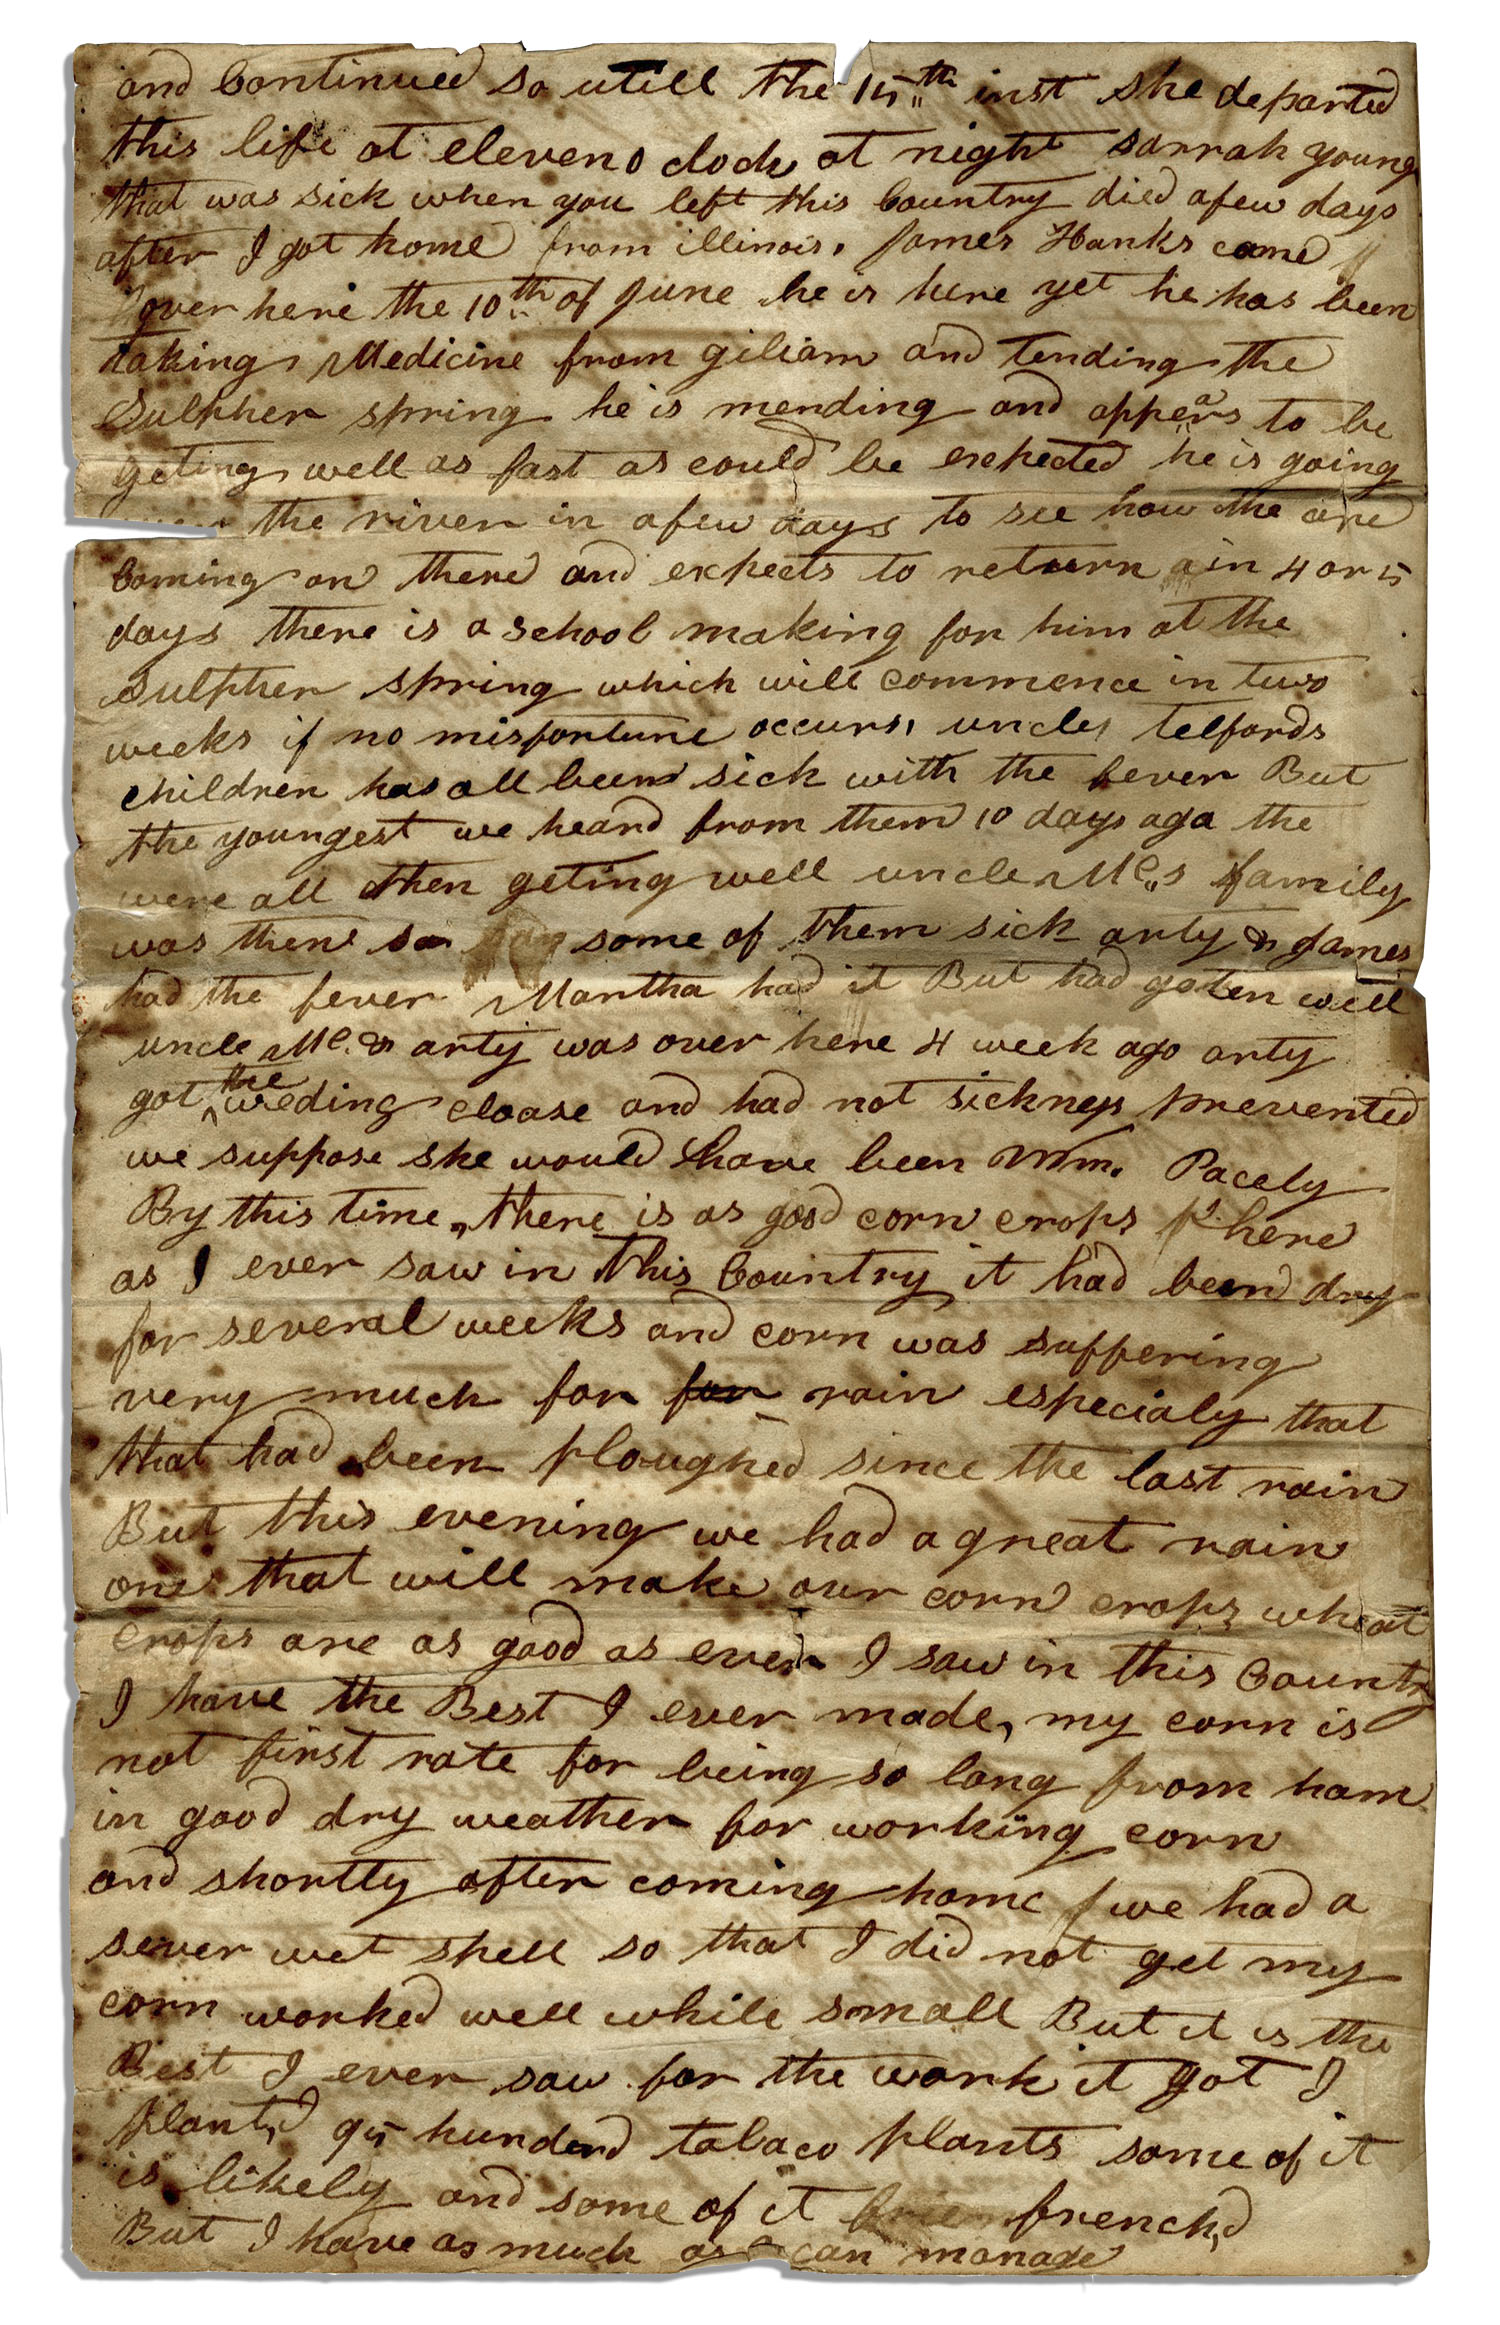 and Continued so utill the 15th inst she departed
this life at eleven o clock at night Sarrah young
that was sick when you left this Country died afew days
after I got home from illinois, James Hanks came
over here the 10th of June he is here yet he has been
taking Medicine from giliam and tending the
Sulpher spring he is mending and appears to be
geting well as fast as could be expected he is going
the river in afew days to see how the are
Coming on there and expects to return in 4 or 5
days there is a school making for him at the
sulpher spring which will commence in two
weeks if no misfortune occurs, uncles telfords
children has all been sick with the fever But
the youngest we heard from them 10 days ago the
were all then geting well uncle Mc,,s family
was then some of them sick arty & James
had the fever Martha had it But had goten well
uncle Mc. & arty was over here 4 week ago arty
got the weding cloase and had not sickness prevented
we suppose she would have been Wm. Pacely
By this time, there is as good corn crops here
as I ever saw in this Country it had been dry
for several weeks and corn was suffering
very much for for rain especialy that
that had been ploughed since the last rain
But this evening we had a great rain
one that will make our corn crops wheat
crops are as good as ever I saw in this Country
I have the Best I ever made, my corn is
not first rate for being so long from hom
in good dry weather for working corn
and shortty after coming home we had a
sever wet shell so that I did not get my
corn worked well while small But it is the
Best I ever saw for the work it got I
plant,d 95 hunderd tabaco plants some of it
is likely and some of it french,d
But I have as much as can manage